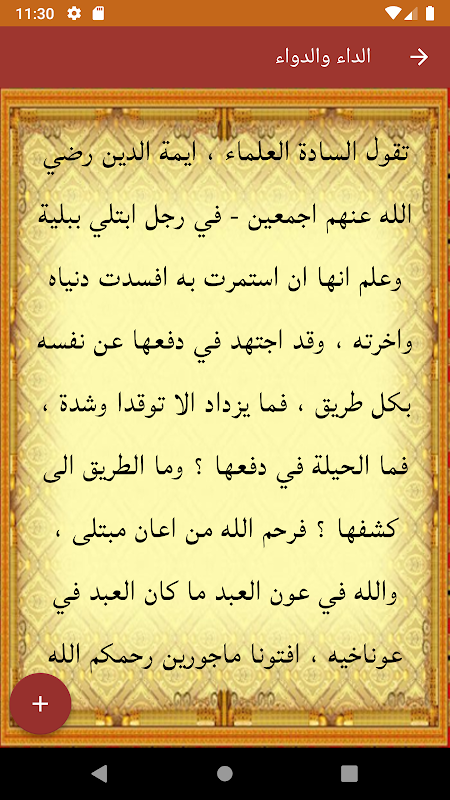 11:30
الداء والدواء
تقول السادة العلماء ، ايمة الدين رضي
الله عنهم اجمعين - في رجل ابتلي ببلية
وعلم انها ان استمرت به افسدت دنياه
واخرته ، وقد اجتهد في دفعها عن نفسه
بكل طريق ، فما يزداد الا توقدا وشدة ،
فما الحيلة في دفعها ؟ وما الطريق الى
كشفها ؟ فرحم الله من اعان مبتلى ،
والله في عون العبد ما كان العبد في
عوناخيه ، افتونا ماجورين رحمكم الله